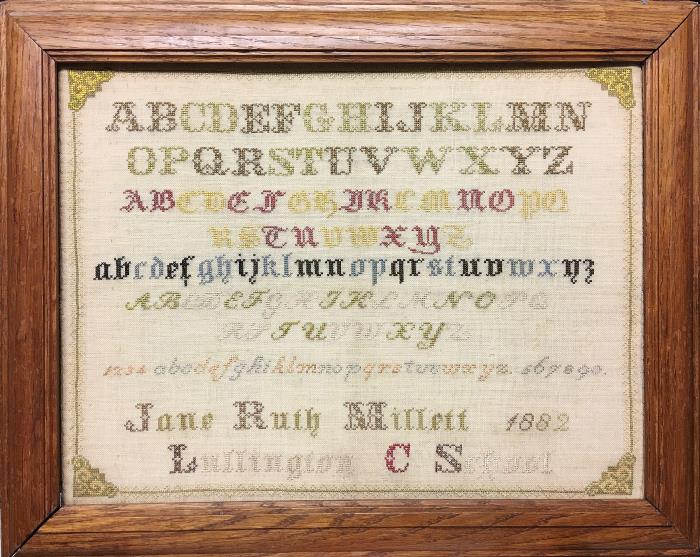 ABCDEFGHIJKLMN
OPQRSTUVWXYZ
ABCDEFGHIKLMNOPQ
RSTUVWXYZ
abcdefghijklmnopqrstuvwxyz
ABCDEFGHIKLMNOPQ
RSTUVWXYZ
1234 abcdefghiklmnopqrstuvwxyz. 567890.
Jane Ruth Millett 1882
Lullington C School